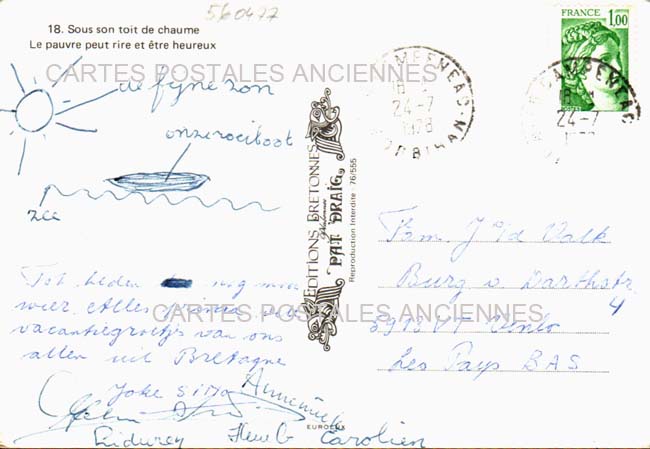 560477
18. Sous son toit de chaume
Le pauvre peut rire et être heureux
CARTES POSTALES ANCIENNES
de fijne zon
onze roeiboot
zee
Tot heden nog mooi
weer. Alles
vacantiegroetjes van ons
allen uit Bretagne
Joke Sitja Annemiek
Carolien
EDITIONS BRETONNES
PAT DRAIG
Reproduction Interdite · 76/555
EUROLUX
FRANCE
1,00
CAMPENEAC
18 H
24-7
1978
MORBIHAN
CAMPENEAC
18 H
24-7
Fam. J. v/d Valk
Burg. v.
4
5913 VT Venlo
Les Pays BAS
CARTES POSTALES ANCIENNES